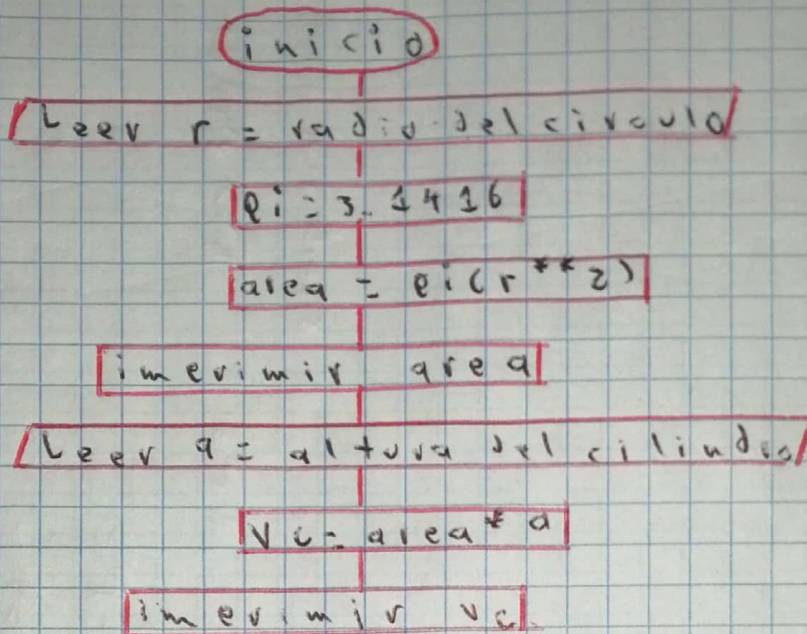 inicio
Leer r = radio del circulo
Pi = 3.1416
area = pi(r**2)
imprimir area
Leer a = altura del cilindro
Vc = area * a
imprimir vc